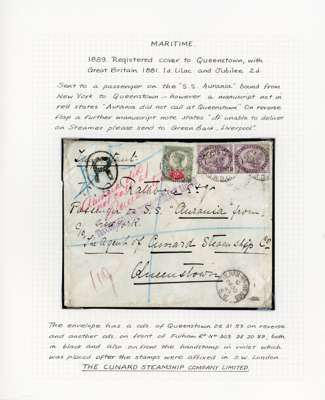 MARITIME.
1889. Registered cover to Queenstown, with
Great Britain 1881. 1d Lilac and Jubilee 2d.
Sent to a passenger on the "S.S. Aurania" bound from
New York to Queenstown - however a manuscript not in
red states "Aurania did not call at Queenstown". On reverse
flap a further manuscript note states "If unable to deliver
on Steamer please send to Green Bank, Liverpool".
R
Rathbone Esqr
Passenger on S.S. "Aurania" from
New York
c/o The Agent of Cunard Steamship Co
Queenstown
The envelope has a cds. of Queenstown DE 31 89 on reverse
and another cds. on front of Fulham Rd No 203 DE 30 89, both
in black and also on front the handstamp in violet which
was placed after the stamps were affixed in S.W. London.
THE CUNARD STEAMSHIP COMPANY LIMITED.